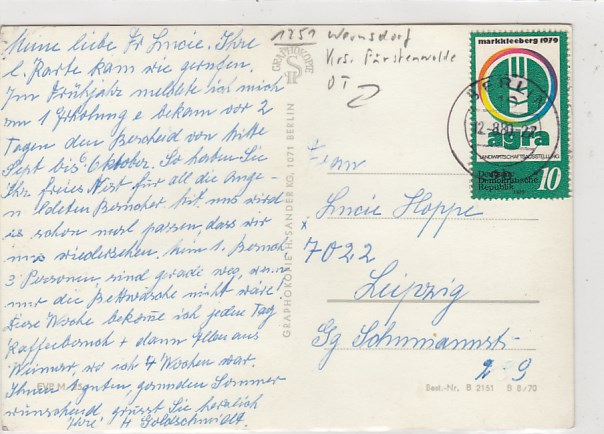 Meine liebe Fr. Lucie. Ihre
l. Karte kam wie gerufen.
Im Frühjahr meldete ich mich
um 1 Erholung e bekam vor 2
Tagen den Bescheid von Mitte
Sept bis Oktober. So haben Sie
Ihr freies Nest für all die Ange-
meldeten Besucher. Mit uns wird
es schon mal passen, dass wir
uns wiedersehen. 1. Besuch
3 Personen, sind gerade weg, wenn
nur die Bettwäsche nicht wäre!
Diese Woche bekomme ich jeden Tag
Kaffeebesuch + dann aus
Weimar, wo ich 4 Wochen war.
Ihnen 1 guten, gesunden Sommer
wünschend, grüsst Sie herzlich
Ihre H Goldschmidt.
EVP M
1251 Wernsdorf
Krs. Fürstenwalde
OT 2
GRAPHOKOPIE
GRAPHOKOPIE H. SANDER KG, 1071 BERLIN
markkleeberg 1979
agra
LANDWIRTSCHAFTSAUSSTELLUNG
Deutsche
Demokratische
Republik
10
BERLIN
Frau
Lucie Hoppe
7022
Leipzig
Gg Schumannst-
Best.-Nr. B 2151 B 8/70